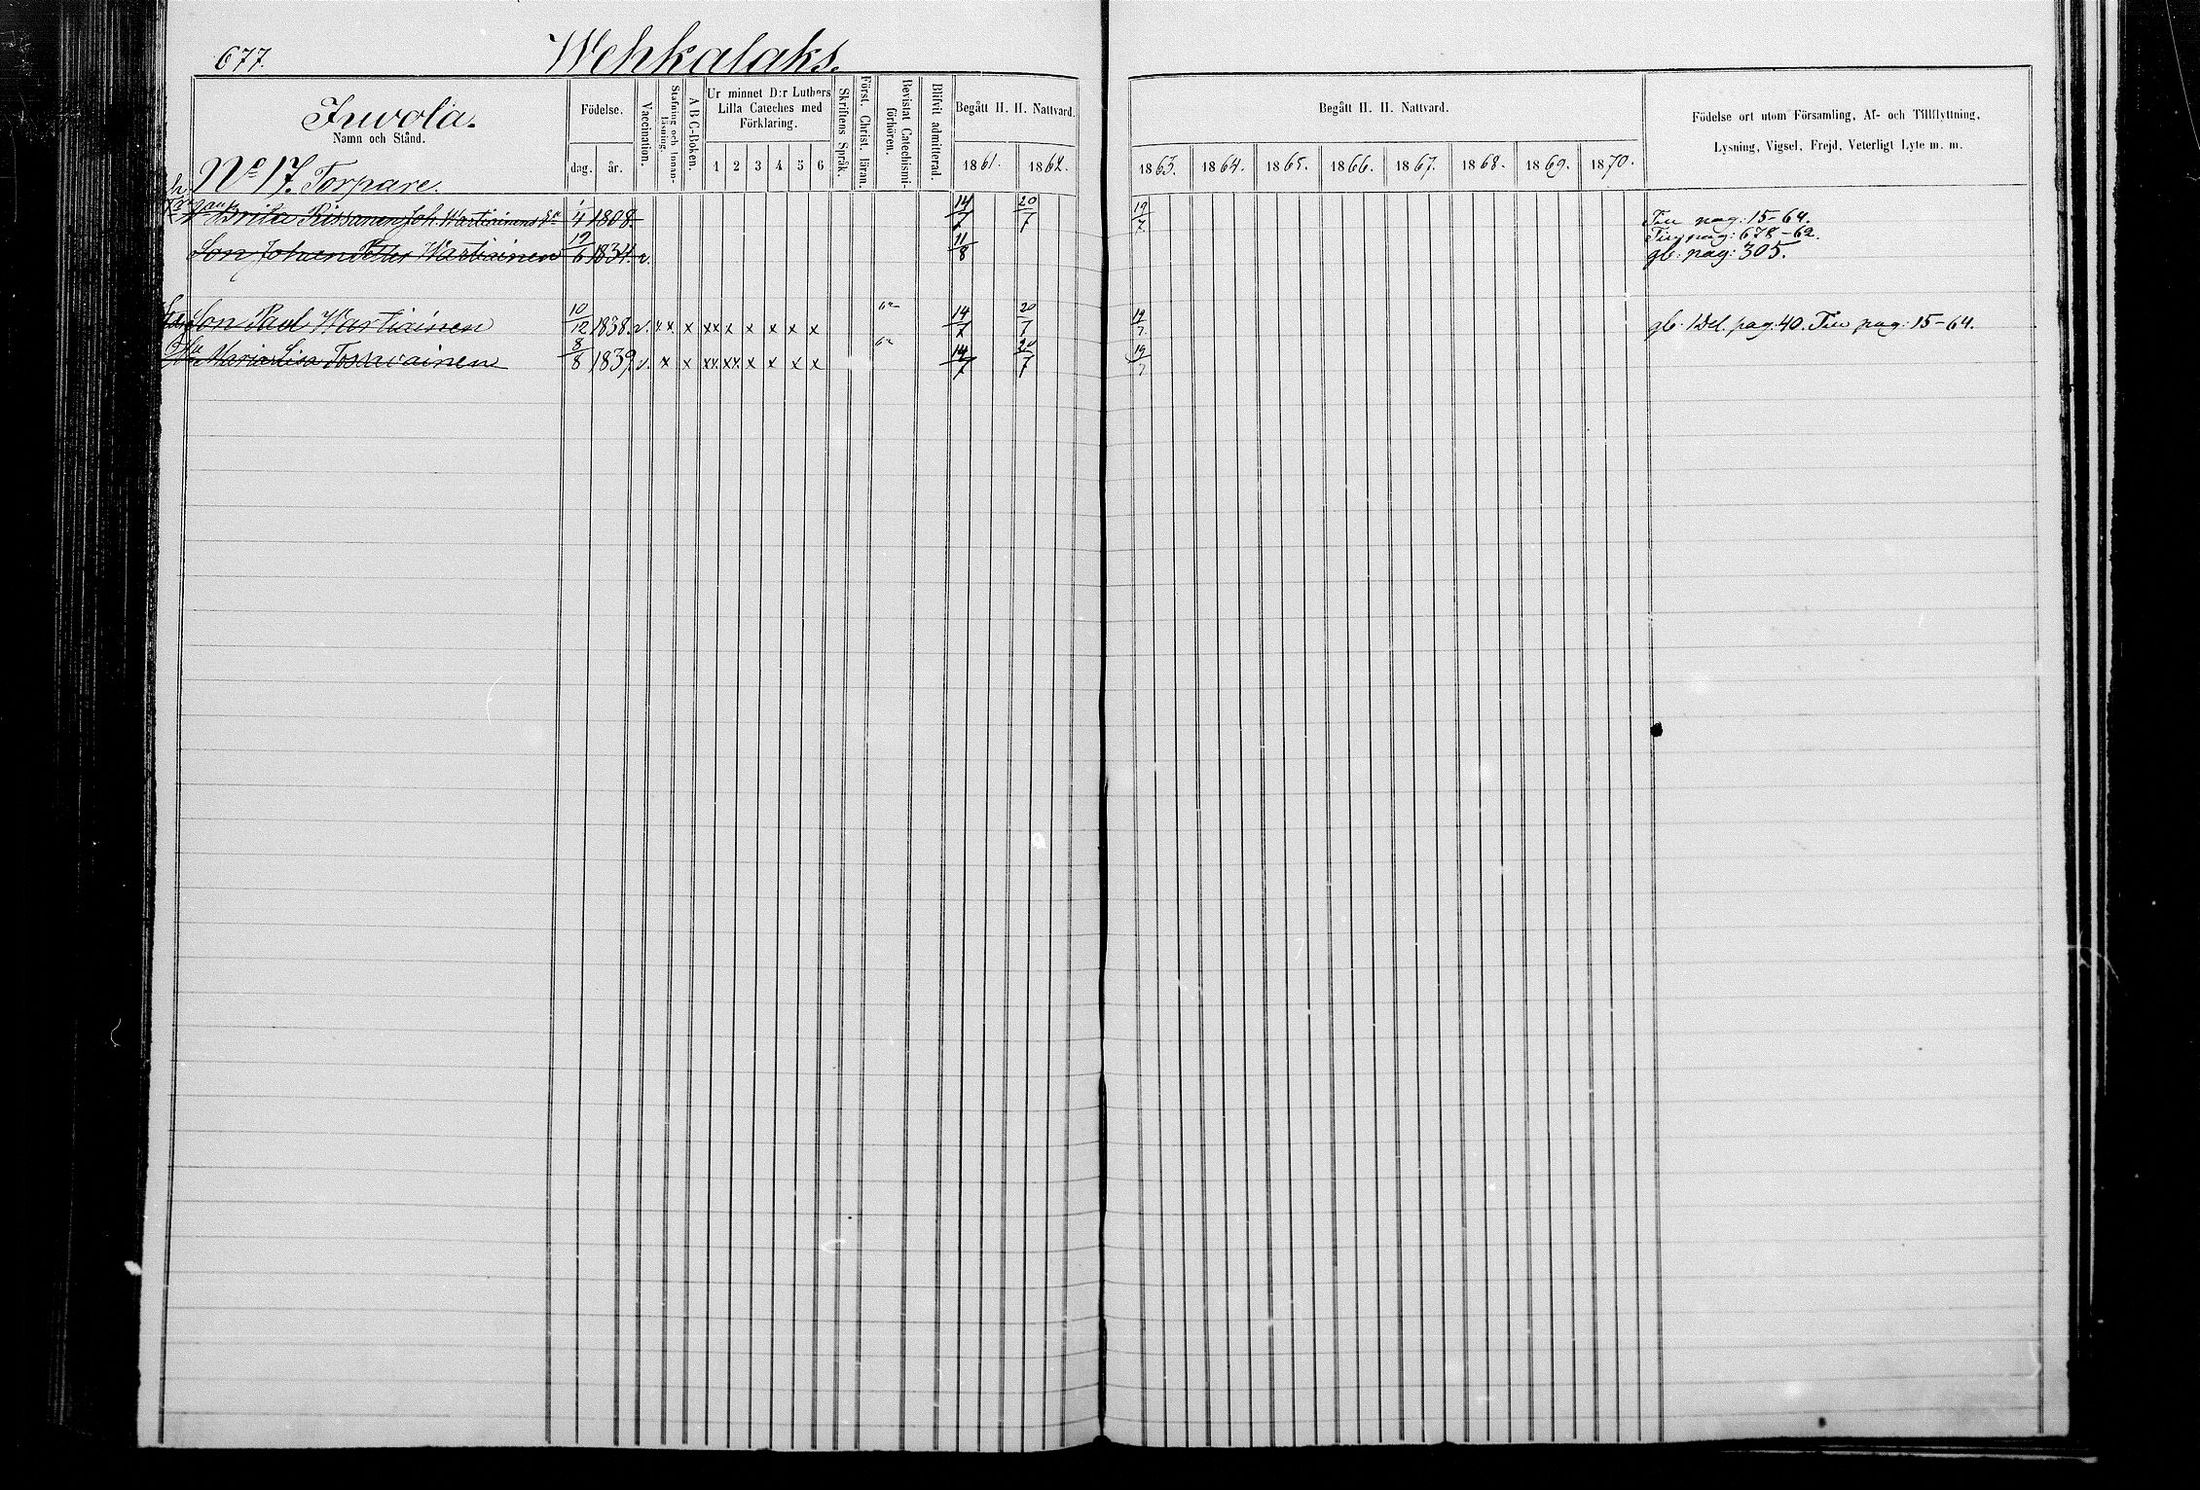 677.
Wehkalaks.
Juvola.
Namn och Stånd.
Födelse.
dag. år.
Vaccination.
Stafning och Innanläsning.
A B C-Boken.
Ur minnet D:r Luthers Lilla Cateches med Förklaring.
1 2 3 4 5 6
Skriftens Språk.
Först. Christ. läran.
Bevistat Catechismiförhören.
Blifvit admitterad.
Begått H. H. Nattvard.
1861. 1862.
Begått H. H. Nattvard.
1863. 1864. 1865. 1866. 1867. 1868. 1869. 1870.
Födelse ort utom Församling, Af- och Tillflyttning,
Lysning, Vigsel, Frejd, Veterligt Lyte m. m.
No 17. Torpare.
Brita Rissanen Joh. Wartiainens 1/4 1808. 14/7 20/7 19/7 pag: 15-64.
Son Johan Petter Wartiainen 19/6 1834. v. 11/8 pag: 678-62.
gb. pag: 305.
Son Paul Wartiainen 10/12 1838. v. x x. x xx x x x x x 14/7 20/7 19/7 gb. 1 Del. pag: 40. pag: 15-64.
Maria Lisa 8/8 1839. v. x x xx. xx. x x x x 14/7 20/7 19/7